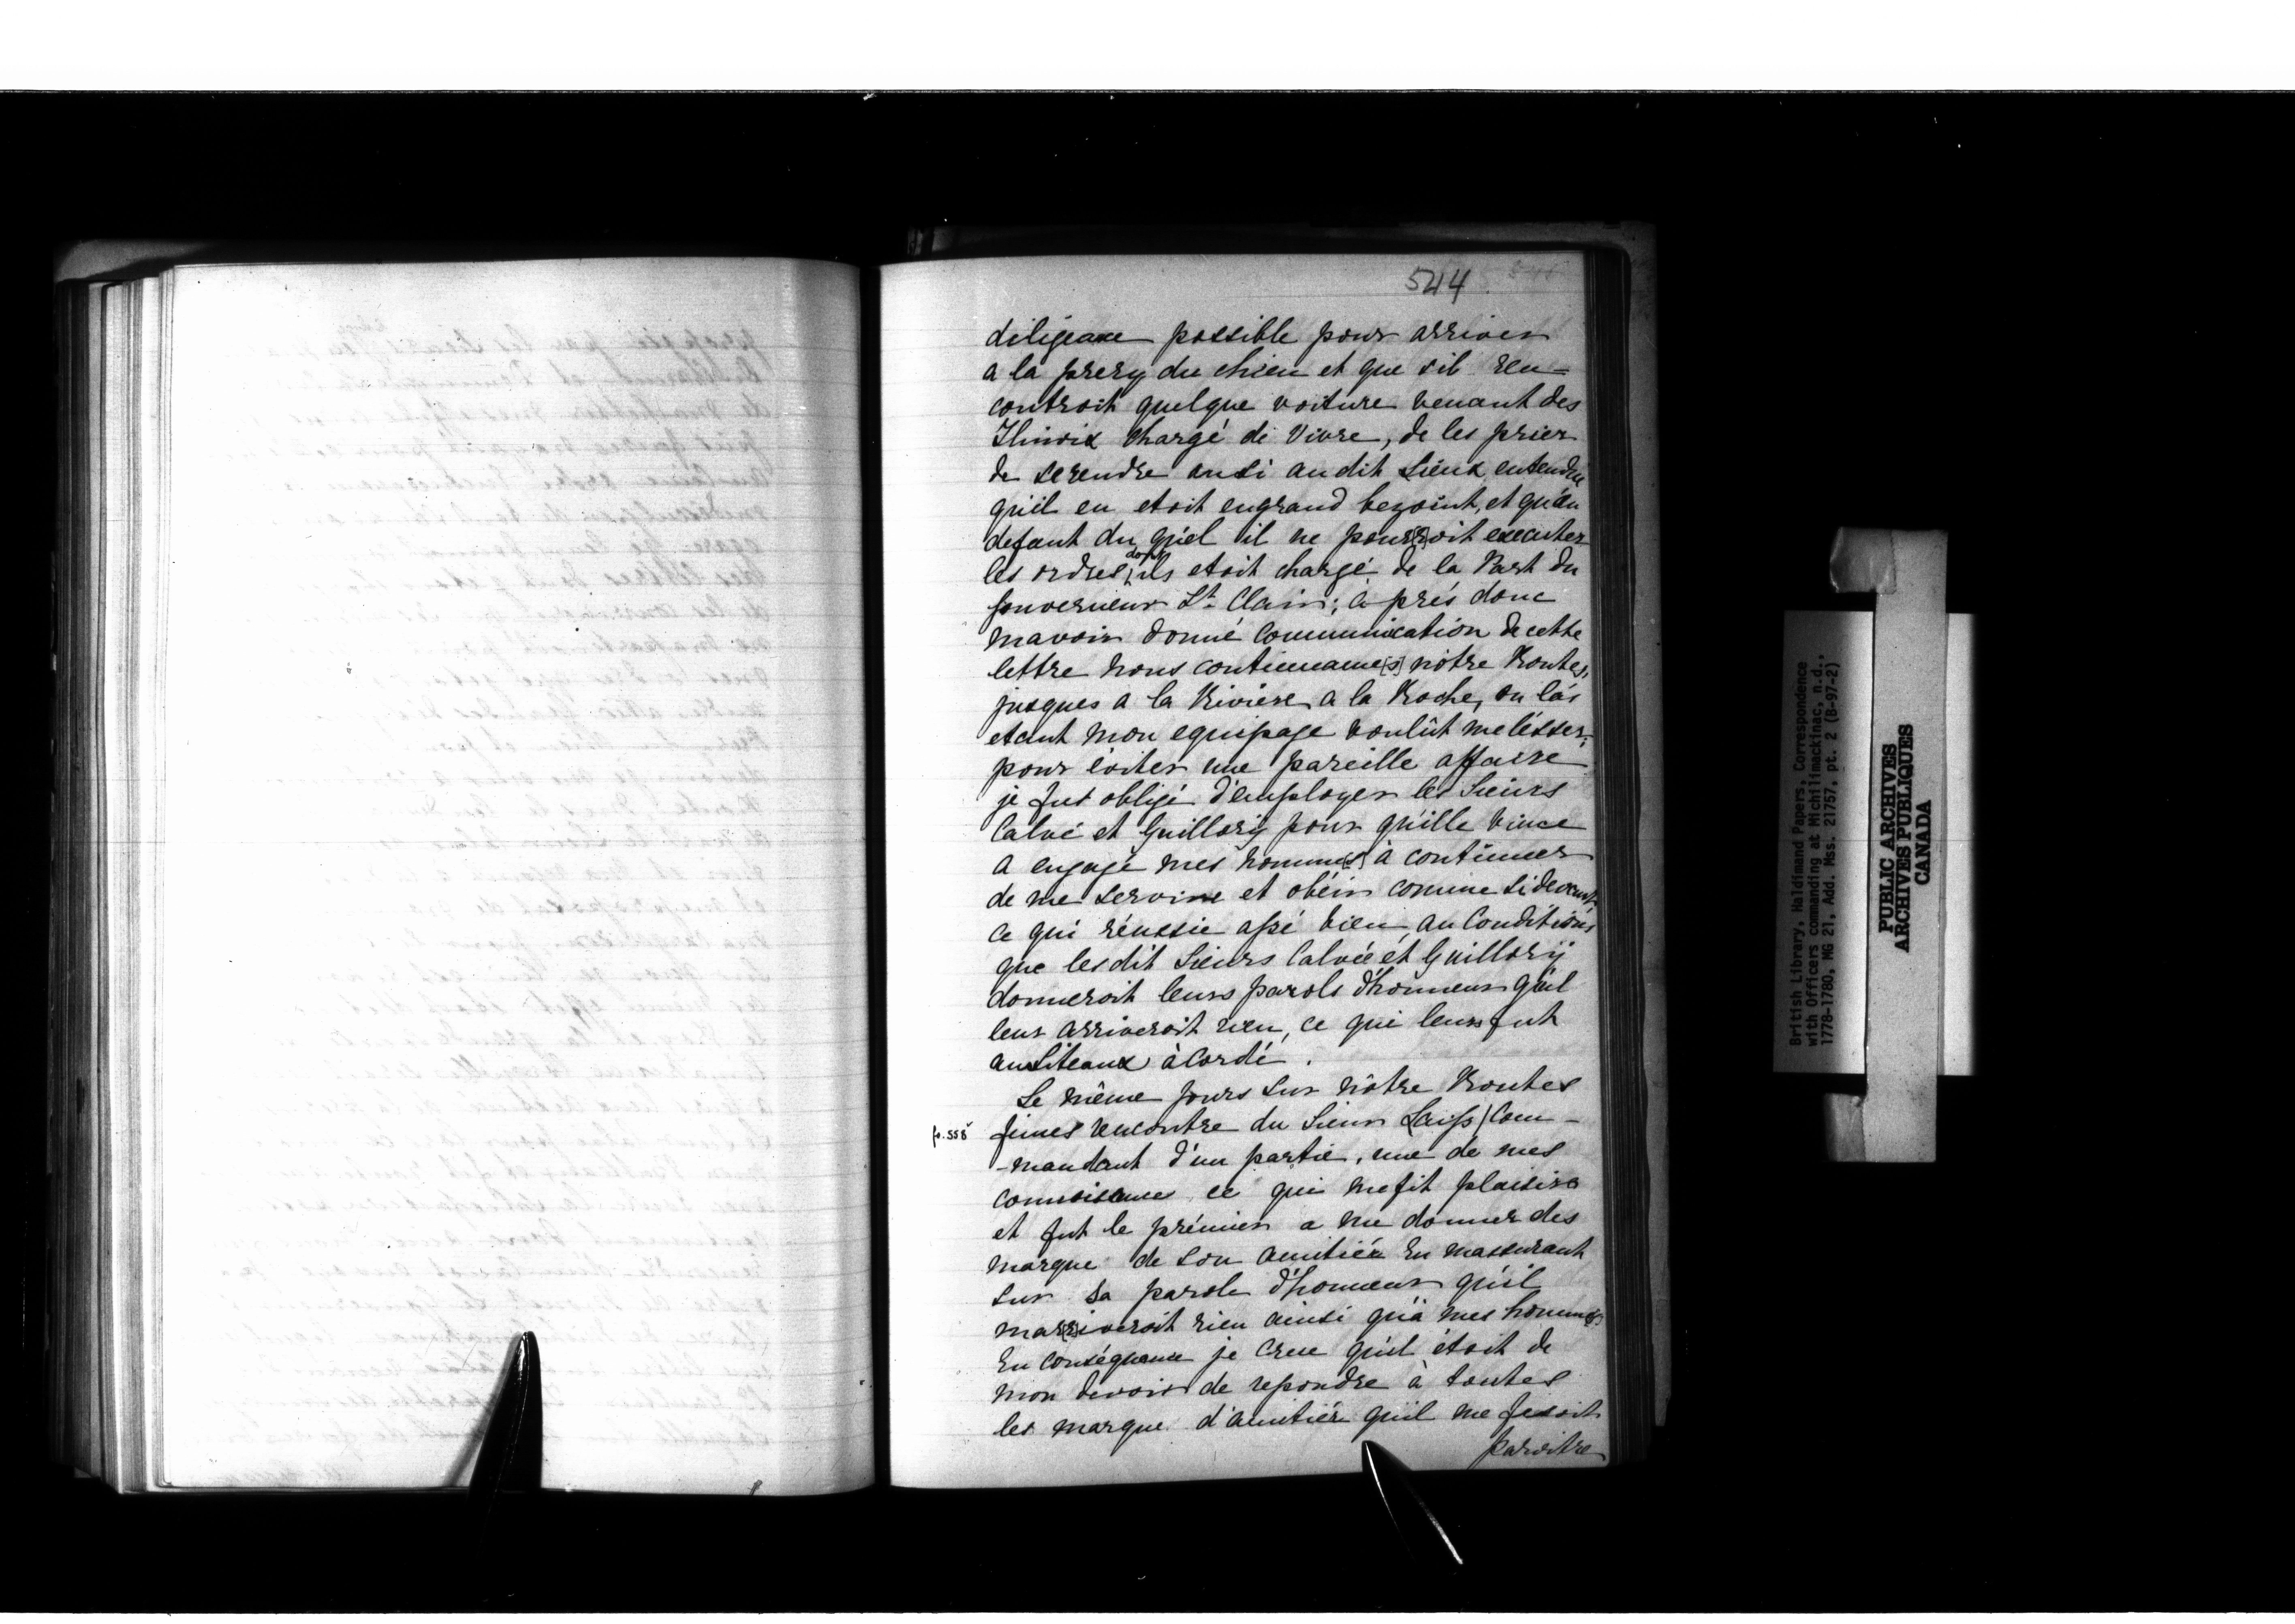 544
diligeance possible pour arriver
a la prery du chien et que sil ren=
controit quelque voiture venant des
Ilinoix chargé de Vivre, de les prier
de serendre ausi au dit Lieux entendu
qu'il en etoit engrand bezoint, et qu'au
defaut du quel il ne pour[r]oit executer
les ordres dont ils etoit chargé de la Part du
gouverneur St Clair; à prés donc
mavoir donné communication de cette
lettre nous continuame[s] nôtre Routes,
jusques a la Riviere a la Roche, ou lás
etant mon equipage voulût me lésser;
pour éviter une pareille affaire
je fus obligé d'employer les Sieurs
Calvé et Guillory pour qu'ille vince
a engagé mes homme[s] à continuer
de me servire et obéir comme sidevant
ce qui réussie assé bien, au Conditions
que lesdit Sieurs Calvée et Guillory
donneroit leurs parols d'honneur qu'il
leur arriveroit rien, ce qui leurs fut
ausiteaux àcordé.
Le même jours sur nôtre Routes
fo. 558 fimes rencontre du Sieur Laiss/Com-
-mandant d'un partie, une de mes
connoisance ce qui me fit plaisire
et fut le prémier a me donner des
marque de son amitiée En massurant
sur sa parole d'honneur qu'il
mar[r]iveroit rien ainsi qu'à mes homme[s]
En conséquance je crue qu'il étoit de
mon devoir de repondre à toutes
les marque d'amitiér qu'il me fesoit
paroitre
British Library, Haldimand Papers, Correspondence
with Officers commanding at Michilimackinac, n.d.,
1778-1780, MG 21, Add. Mss. 21757, pt. 2 (B-97-2)
PUBLIC ARCHIVES
ARCHIVES PUBLIQUES
CANADA